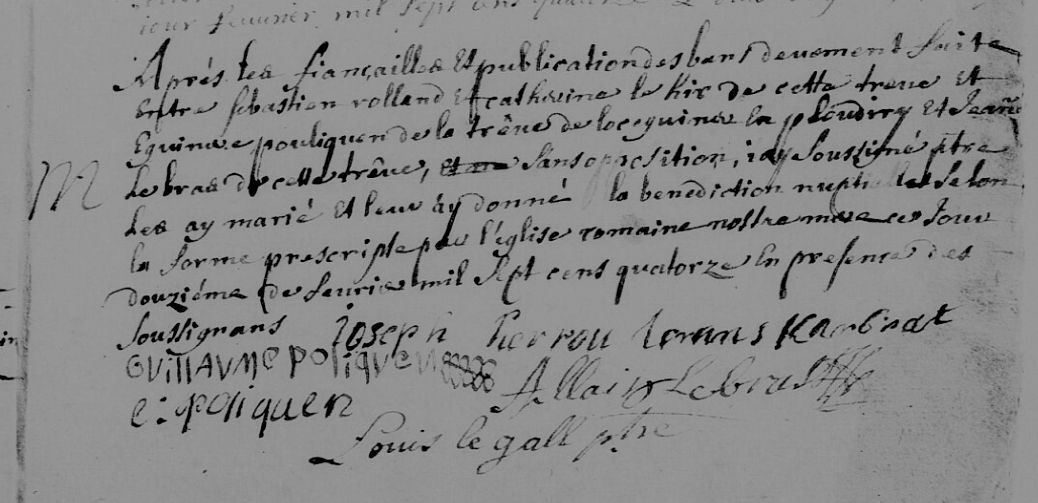 jour feuvrier mil sept cens quatorze
Aprés les fiançailles Et publication des bans deuement faite
Entre sebastien rolland Et catherine le hir de cette treue Et
Eguinere pouliquen de la trêue de loceguiner En ploudiry Et Jeañe
Le bras de cette trêue, sans oposition, iay soussigné ptre
M
Les ay marié Et leur ay donné la benediction nuptialle selon
la forme prescripte par l'église romaine nostre mere ce Jour
douziéme de feurier mil sept cens quatorze En presence des
soussignans Joseph Pierrou
GVillAVMe POliqueN
Allain Le bras
e: poliquen
Louis le gall ptre